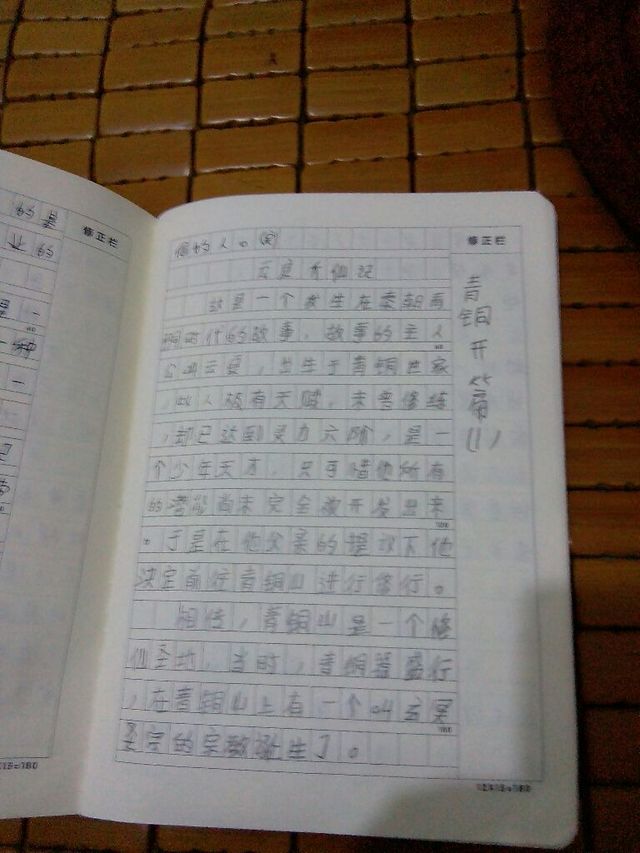 的是
业的
一
一种
一
修正栏
的人。
云夏 仙记
这是一个发生在 朝
时代的故事,故事的主人
公叫云夏,出生于青铜世家
,此人极有天赋,未曾修练
,却已达到灵力六阶,是一
个少年天才,只可惜他所有
的潜能尚未完全被开发出来
。于是在他父亲的提议下他
决定前往青铜山进行修行。
相传,青铜山是一个修
仙圣地,当时,青铜器盛行
,在青铜山上有一个叫玄冥
宗的宗教诞生了。
修正栏
青铜开篇(1)
12X15=180